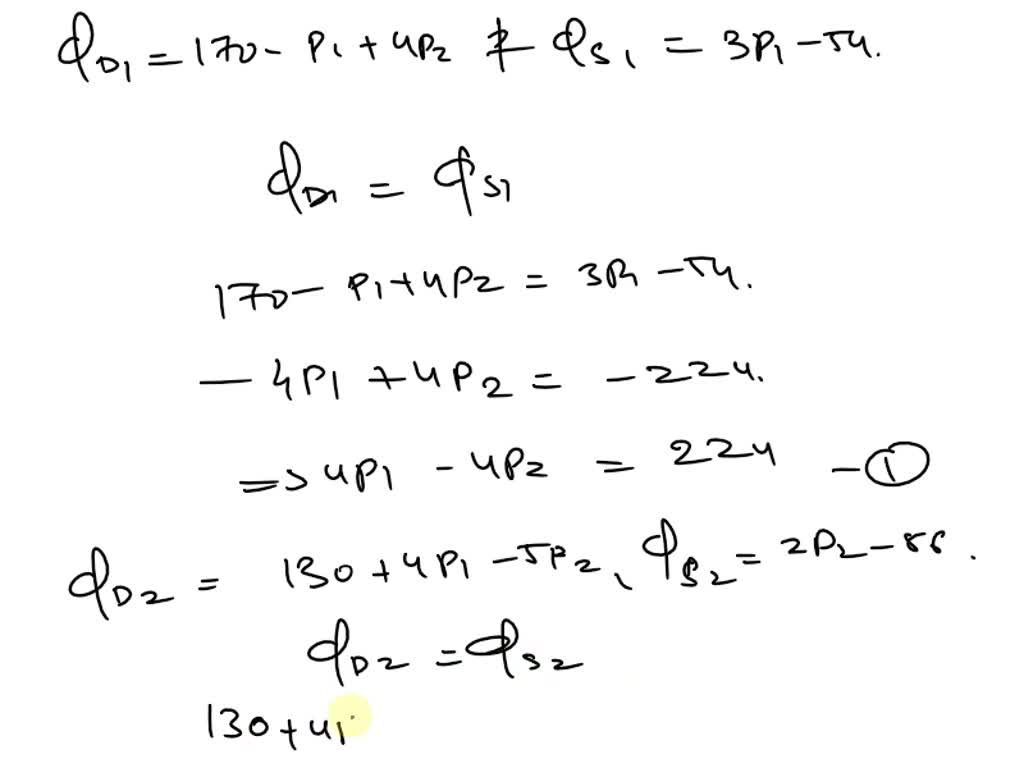 Q_D1 = 170 - P1 + 4P2 & Q_S1 = 3P1 - 54.
Q_D1 = Q_S1
170 - P1 + 4P2 = 3P1 - 54.
- 4P1 + 4P2 = - 224.
=> 4P1 - 4P2 = 224 - ①
Q_D2 = 130 + 4P1 - 5P2, Q_S2 = 2P2 - 56.
Q_D2 = Q_S2
130 + 4P